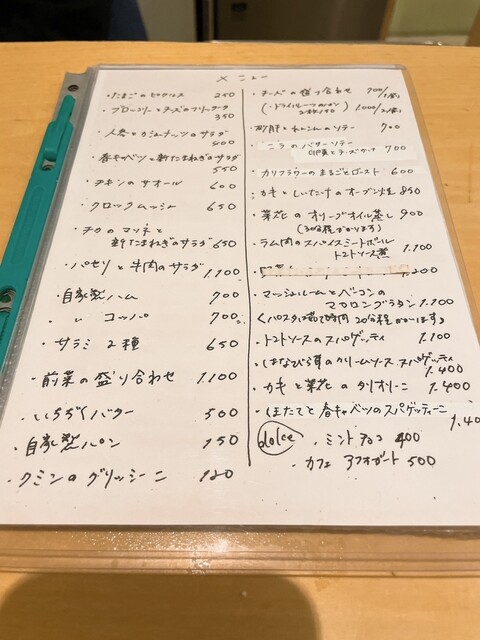 メニュー
・たまごのピクルス 250
・ブロッコリーとチーズのフリッタータ
350
・人参とカシューナッツのサラダ
400
・春キャベツと新たまねぎのサラダ
550
・チキンのサオール 600
・クロックムッシュ 650
・タコのマリネと
新たまねぎのサラダ 650
・パセリと牛肉のサラダ 1,100
・自家製ハム 700
・〃 コッパ 700
・サラミ2種 650
・前菜の盛り合わせ 1,100
・いちぢくバター 500
・自家製パン 150
・クミンのグリッシーニ 120
・チーズの盛り合わせ 700
(・ドライフルーツ 1,000
・砂肝とれんこんのソテー 700
・ニラのバターソテー
卵黄とチーズ 700
・カリフラワーのまるごとロースト 600
・カキとしいたけのオーブン焼 850
・菜花のオリーブオイル蒸し 900
(30分程かかります)
・ラム肉のスパイスミートボール
トマトソース煮 1,100
1,200
・マッシュルームとベーコンの
マカロニグラタン 1,100
(パスタは茹で時間20分程かかります)
・トマトソースのスパゲッティ 1,100
・はなびら茸のクリームソーススパゲッティ
1,400
・カキと菜花のタリオリーニ 1,400
・ほたてと春キャベツのスパゲッティーニ
1,40
dolce ・ミントチョコ 400
・カフェアフォガート 500